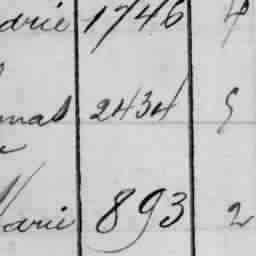 drie 1746 4
mas 2434 5
Marie 893 2